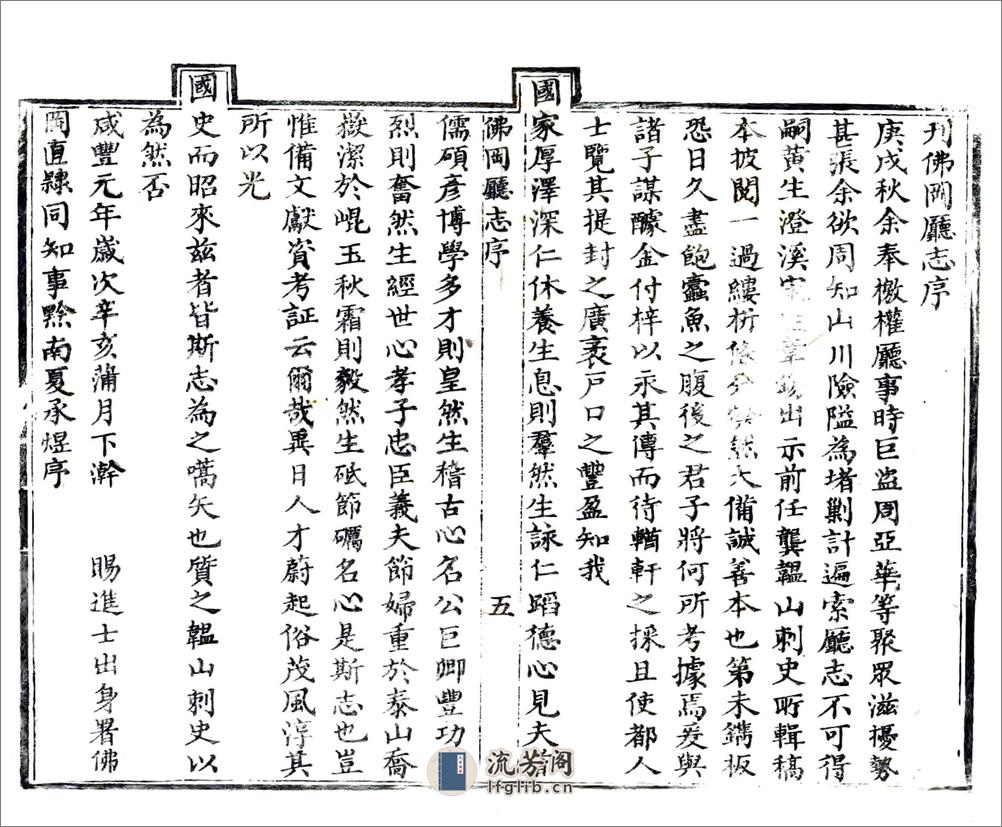 刊佛岡廳志序
庚戌秋余奉檄權廳事時巨盜周亞華等聚眾滋擾勢
甚張余欲周知山川險隘為堵剿計遍索廳志不可得
嗣黃生澄溪宋生葦錫出示前任龔韞山刺史所輯稿
本披閱一過縷析條分燦然大備誠善本也第未鐫板
恐日久盡飽蠹魚之腹後之君子將何所考據焉爰與
諸子謀醵金付梓以永其傳而待輶軒之採且使都人
士覽其提封之廣袤戶口之豐盈知我
國家厚澤深仁休養生息則羣然生詠仁蹈德心見夫耆
佛岡廳志序
五
儒碩彥博學多才則皇然生稽古心名公巨卿豐功
烈則奮然生經世心孝子忠臣義夫節婦重於泰山喬
嶽潔於崐玉秋霜則毅然生砥節礪名心是斯志也豈
惟備文獻資考証云爾哉異日人才蔚起俗茂風淳其
所以光
國史而昭來茲者皆斯志為之嚆矢也質之韞山刺史以
為然否
咸豐元年歲次辛亥蒲月下澣 賜進士出身署佛
岡直隸同知事黔南夏承煜序
流芳阁
lfglib.cn